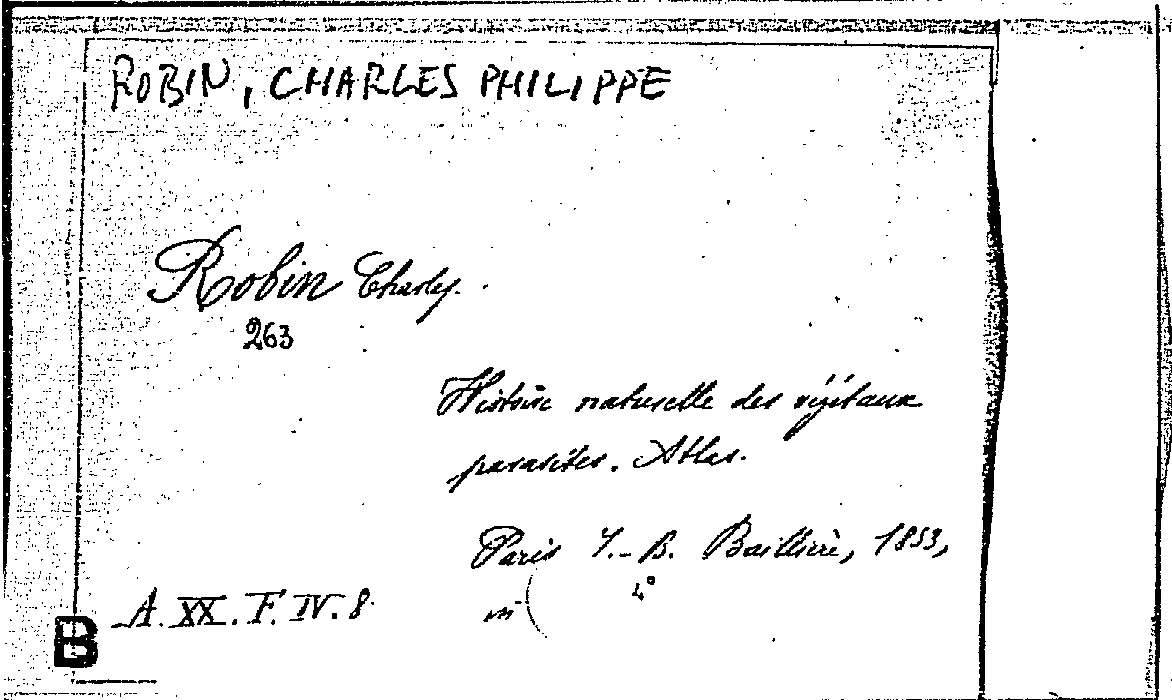 ROBIN, CHARLES PHILIPPE
Robin Charles.
263
Histoire naturelle des végétaux
parasites. Atlas.
Paris J.-B. Baillière, 1853,
4°
A. XX. F. IV. 8.
B